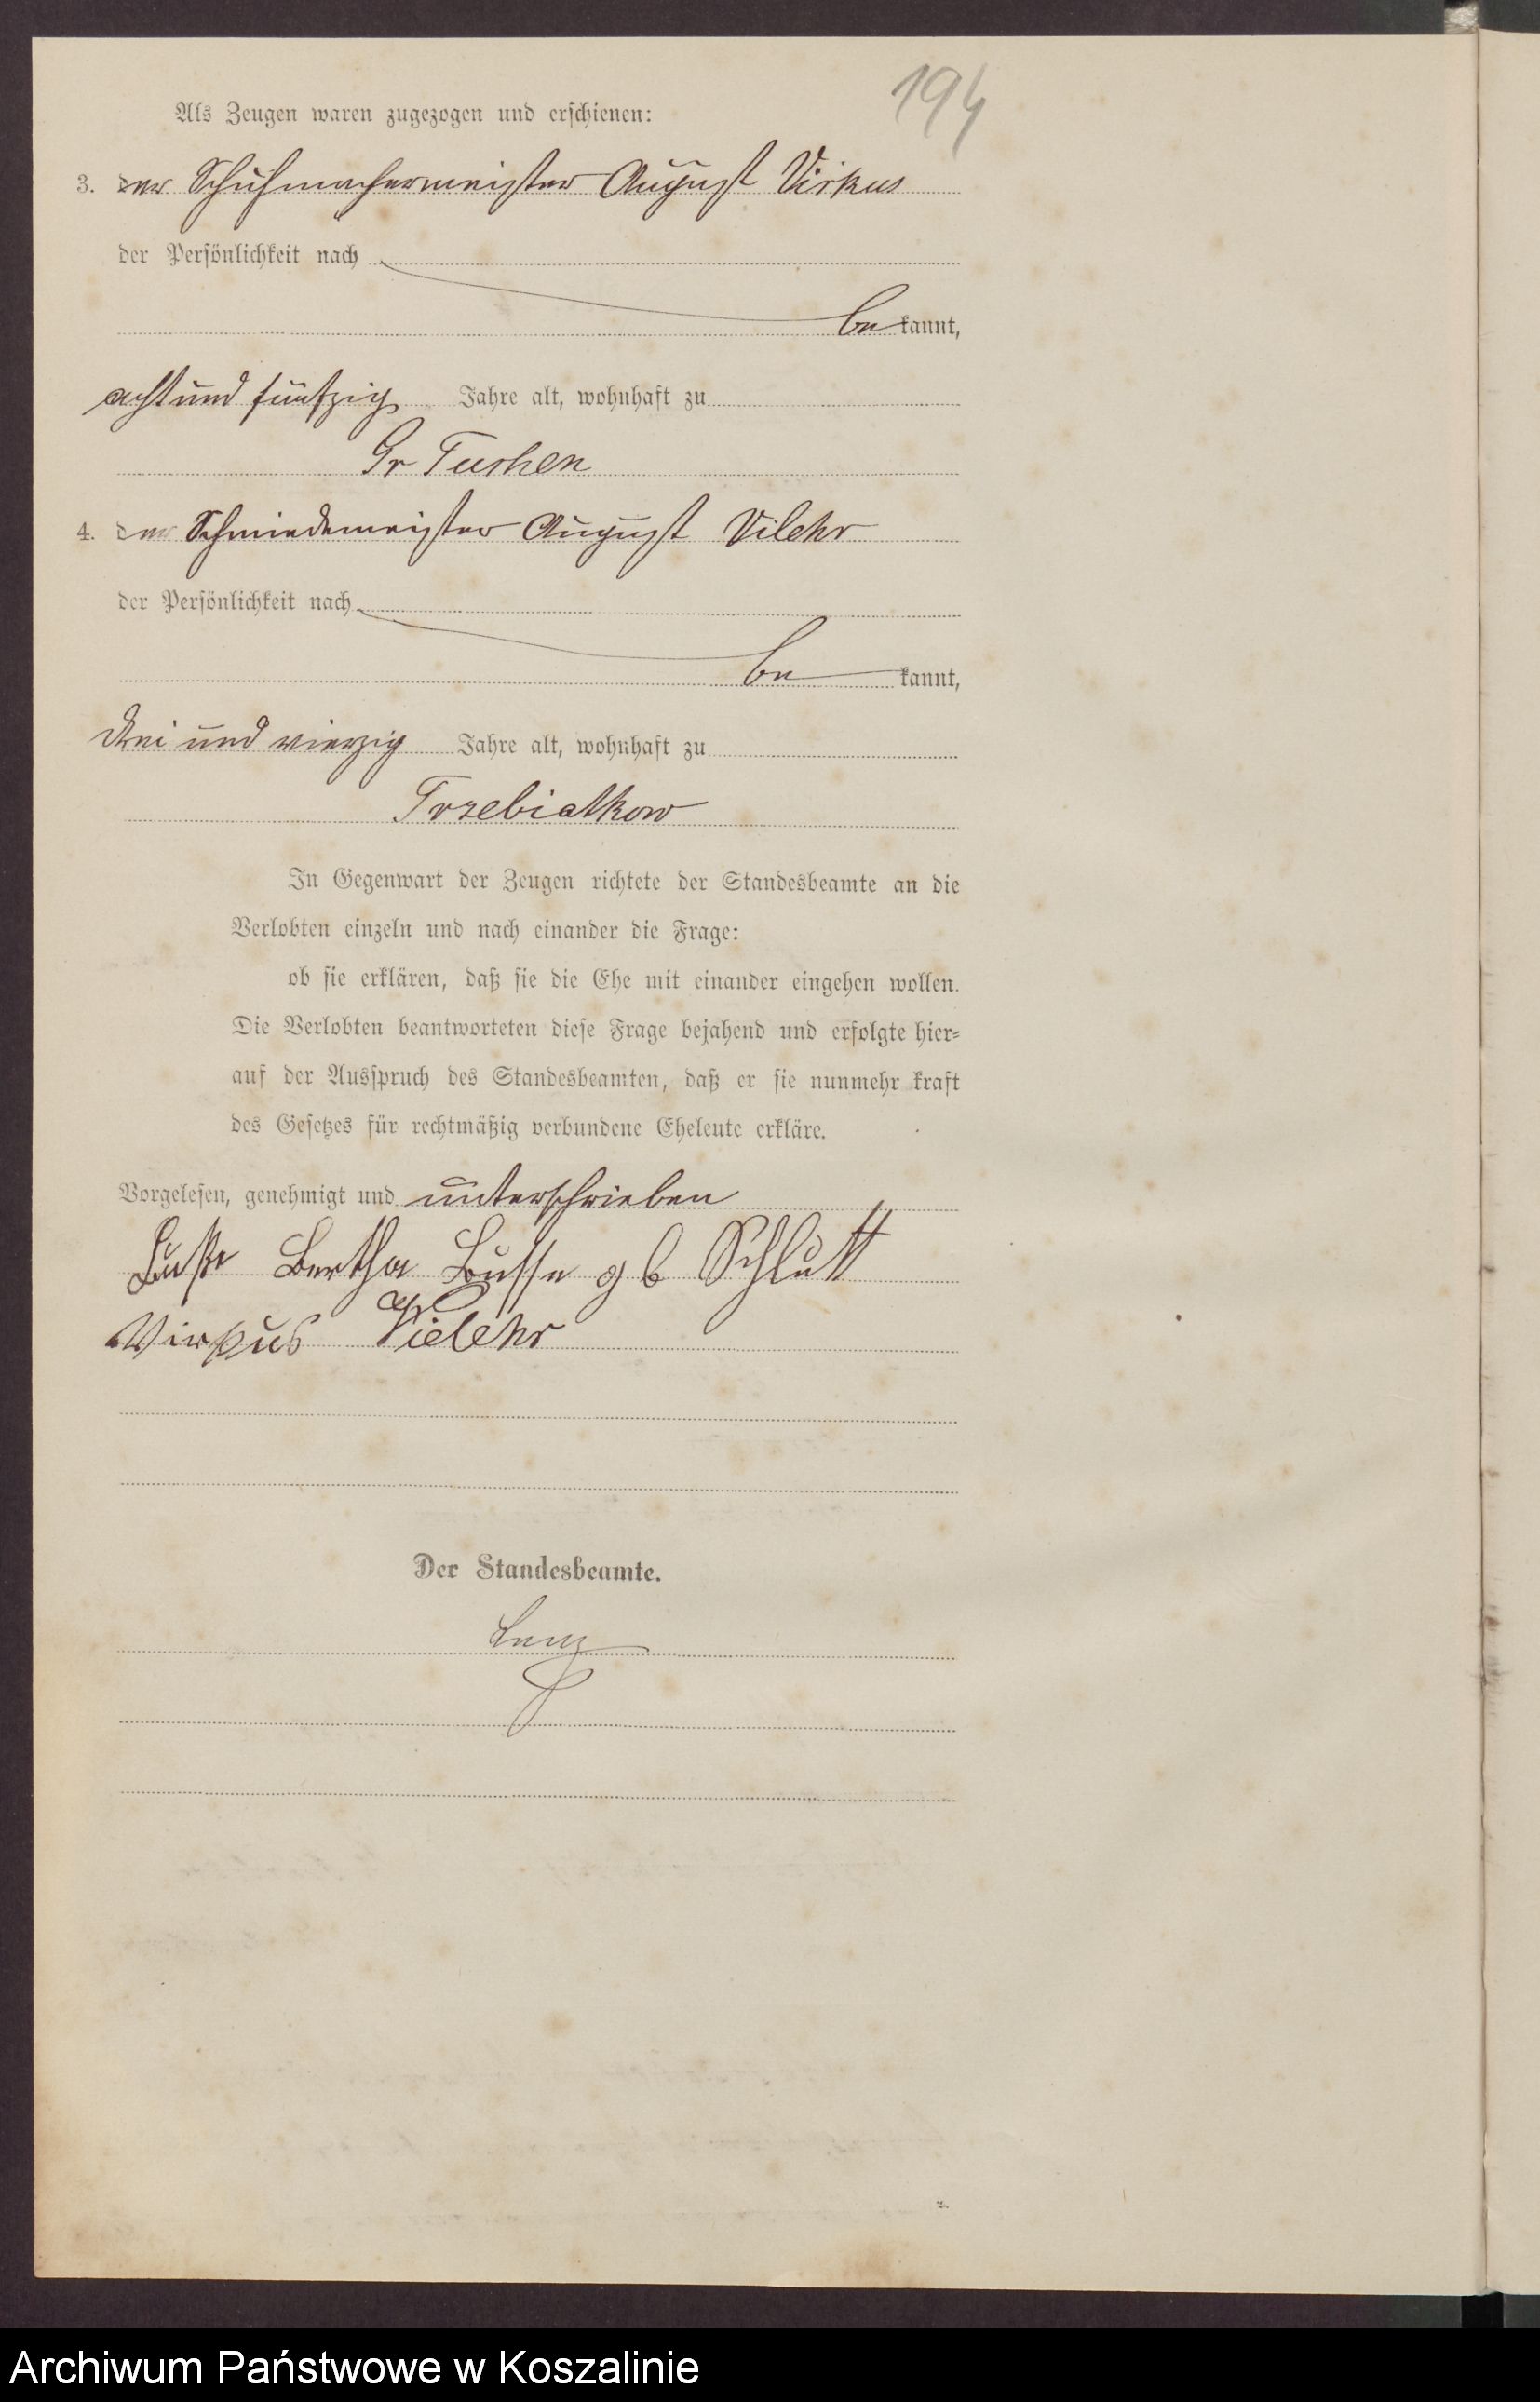 194
Als Zeugen waren zugezogen und erschienen:
3. der Schuhmachermeister August Virkus
der Persönlichkeit nach
be kannt,
acht und fünfzig Jahre alt, wohnhaft zu
Gr Tuchen
4. der Schmiedemeister August Vilehr
der Persönlichkeit nach
be kannt,
drei und vierzig Jahre alt, wohnhaft zu
Trzebiatkow
In Gegenwart der Zeugen richtete der Standesbeamte an die
Verlobten einzeln und nach einander die Frage:
ob sie erklären, daß sie die Ehe mit einander eingehen wollen.
Die Verlobten beantworteten diese Frage bejahend und erfolgte hier-
auf der Ausspruch des Standesbeamten, daß er sie nunmehr kraft
des Gesetzes für rechtmäßig verbundene Eheleute erkläre.
Vorgelesen, genehmigt und unterschrieben
Bertha Busse gb Schlutt
Wirkus Vielehr
Der Standesbeamte.
Lenz
Archiwum Państwowe w Koszalinie